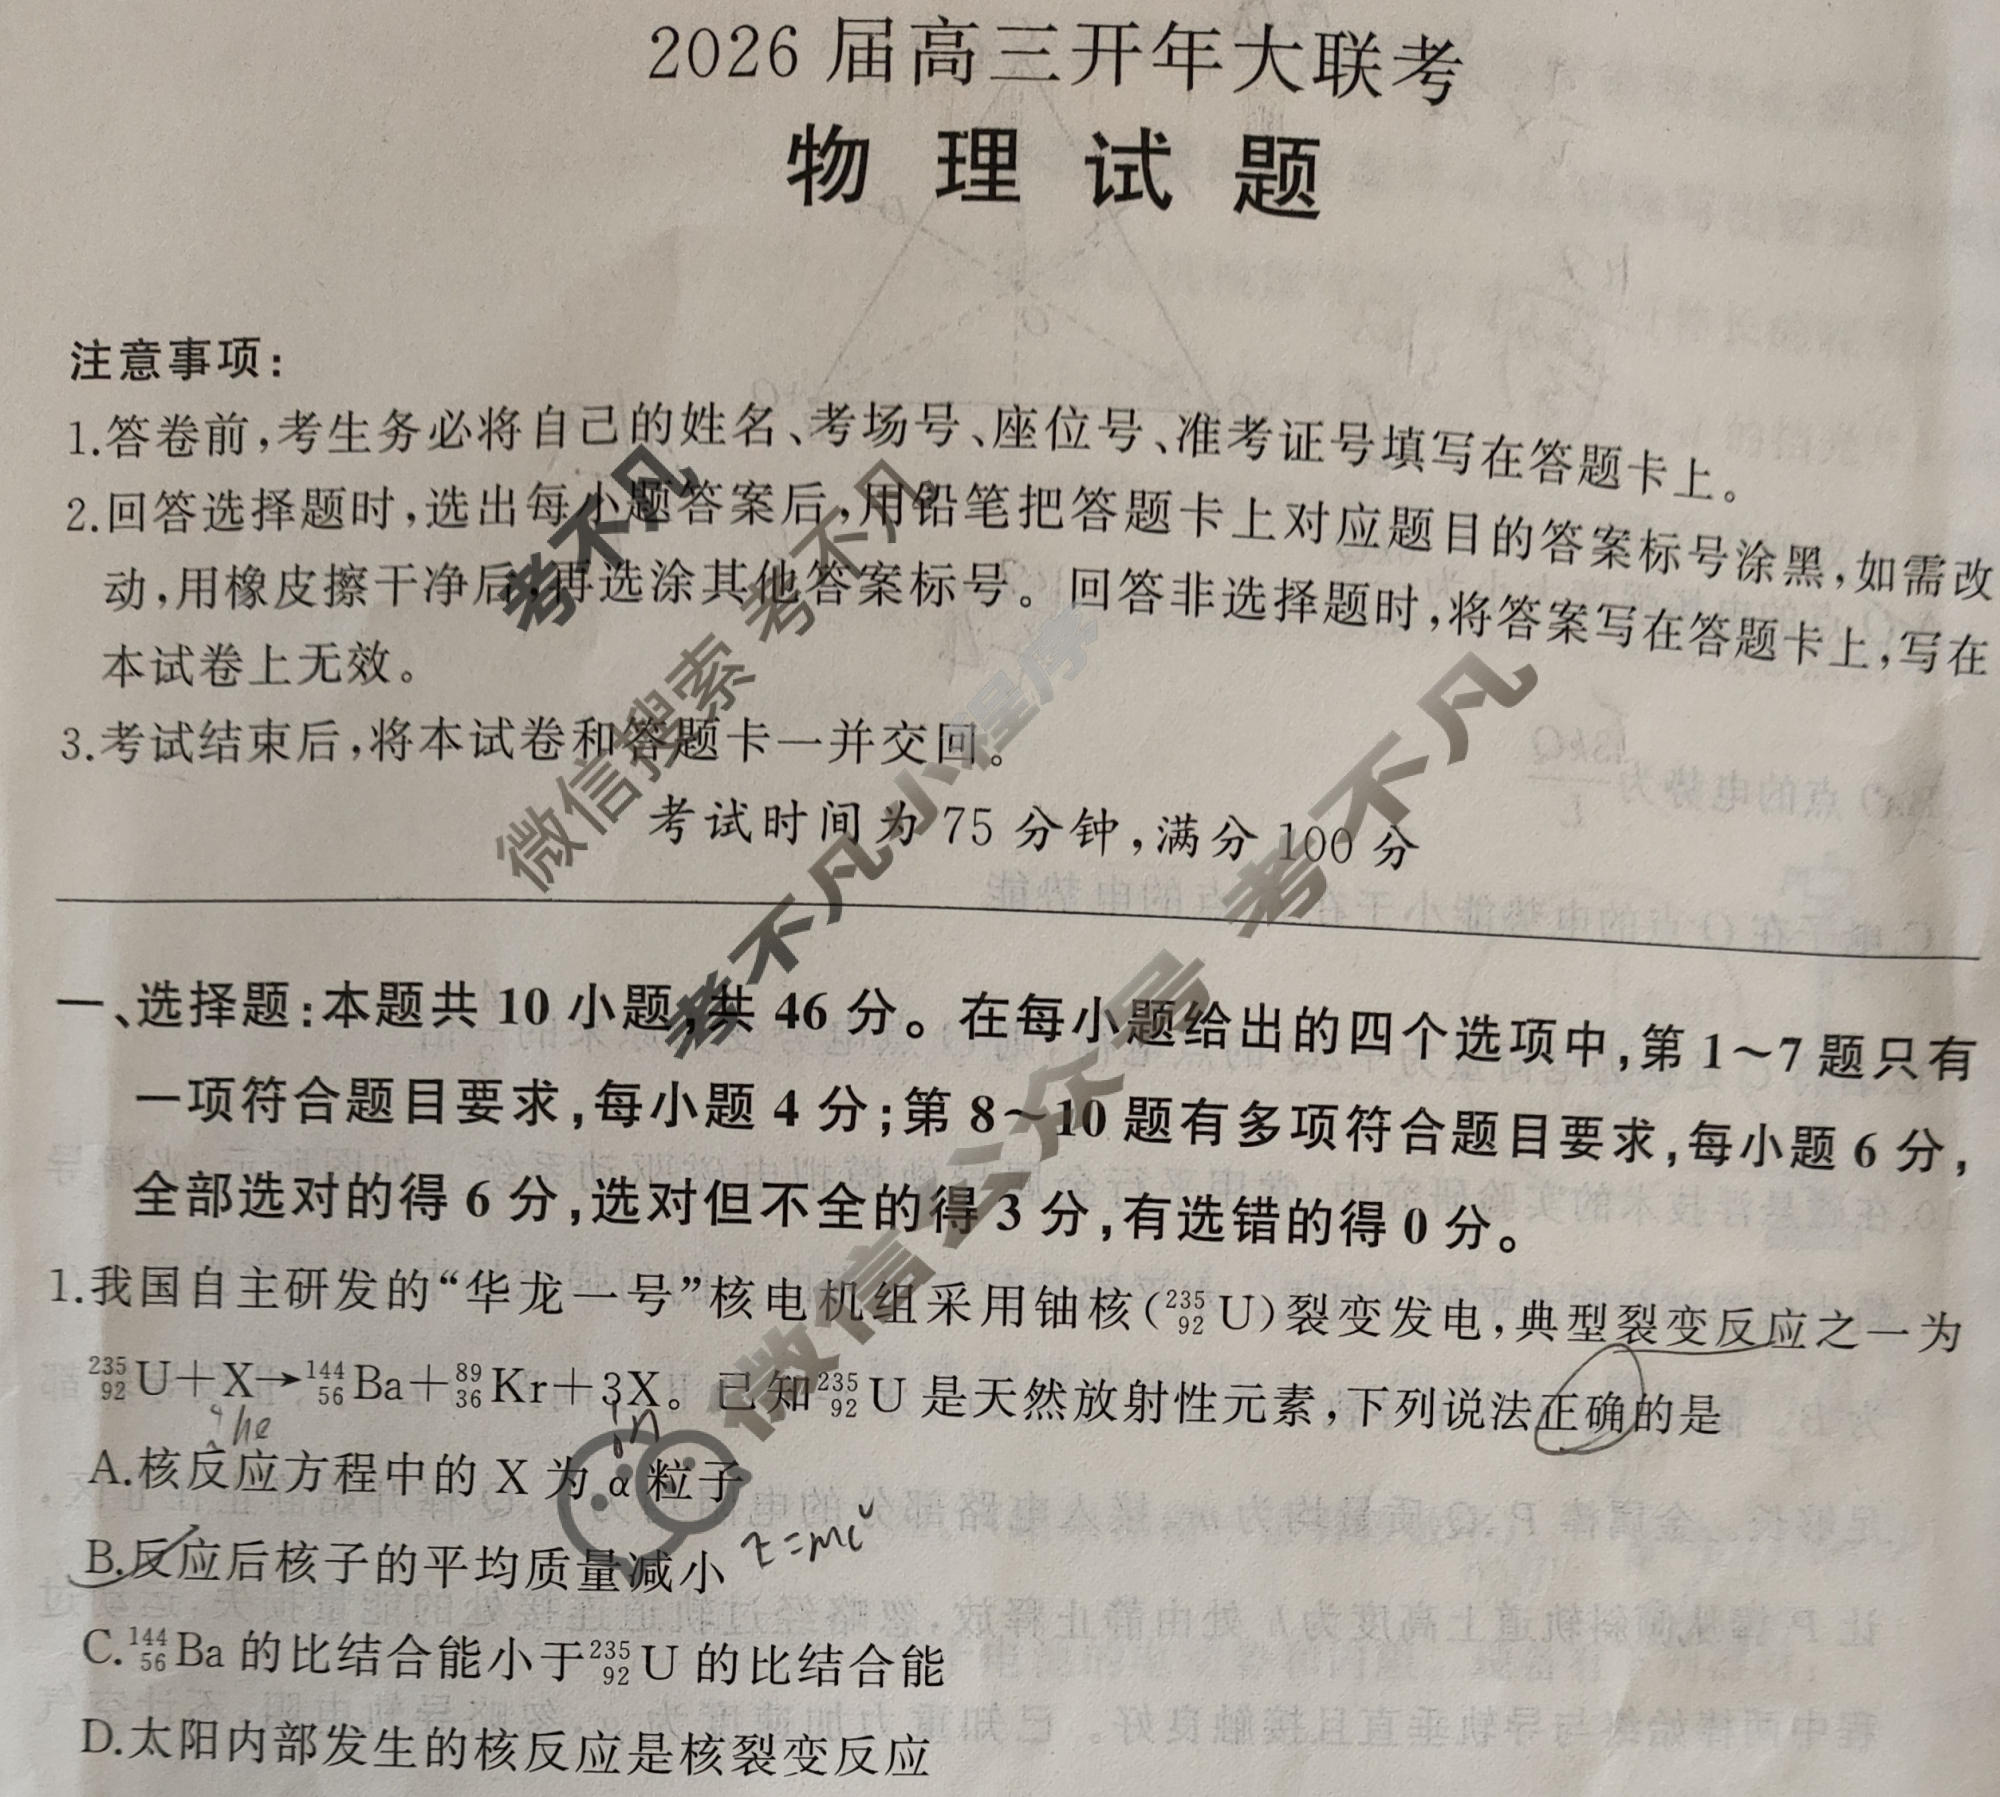 2026 届高三开年大联考
物 理 试 题
注意事项:
1.答卷前,考生务必将自己的姓名、考场号、座位号、准考证号填写在答题卡上。
2.回答选择题时,选出每小题答案后,用铅笔把答题卡上对应题目的答案标号涂黑,如需改
动,用橡皮擦干净后,再选涂其他答案标号。回答非选择题时,将答案写在答题卡上,写在
本试卷上无效。
3.考试结束后,将本试卷和答题卡一并交回。
考试时间为 75 分钟,满分 100 分
一、选择题:本题共 10 小题,共 46 分。在每小题给出的四个选项中,第 1~7 题只有
一项符合题目要求,每小题 4 分;第 8~10 题有多项符合题目要求,每小题 6 分,
全部选对的得 6 分,选对但不全的得 3 分,有选错的得 0 分。
1.我国自主研发的“华龙一号”核电机组采用铀核(²³⁵₉₂U)裂变发电,典型裂变反应之一为
²³⁵₉₂U+X→¹⁴⁴₅₆Ba+⁸⁹₃₆Kr+3X。已知²³⁵₉₂U 是天然放射性元素,下列说法正确的是
A.核反应方程中的 X 为 α 粒子
B.反应后核子的平均质量减小
C.¹⁴⁴₅₆Ba 的比结合能小于²³⁵₉₂U 的比结合能
D.太阳内部发生的核反应是核裂变反应
考不凡
微信搜索 考不凡
考不凡小程序
微信公众号 考不凡